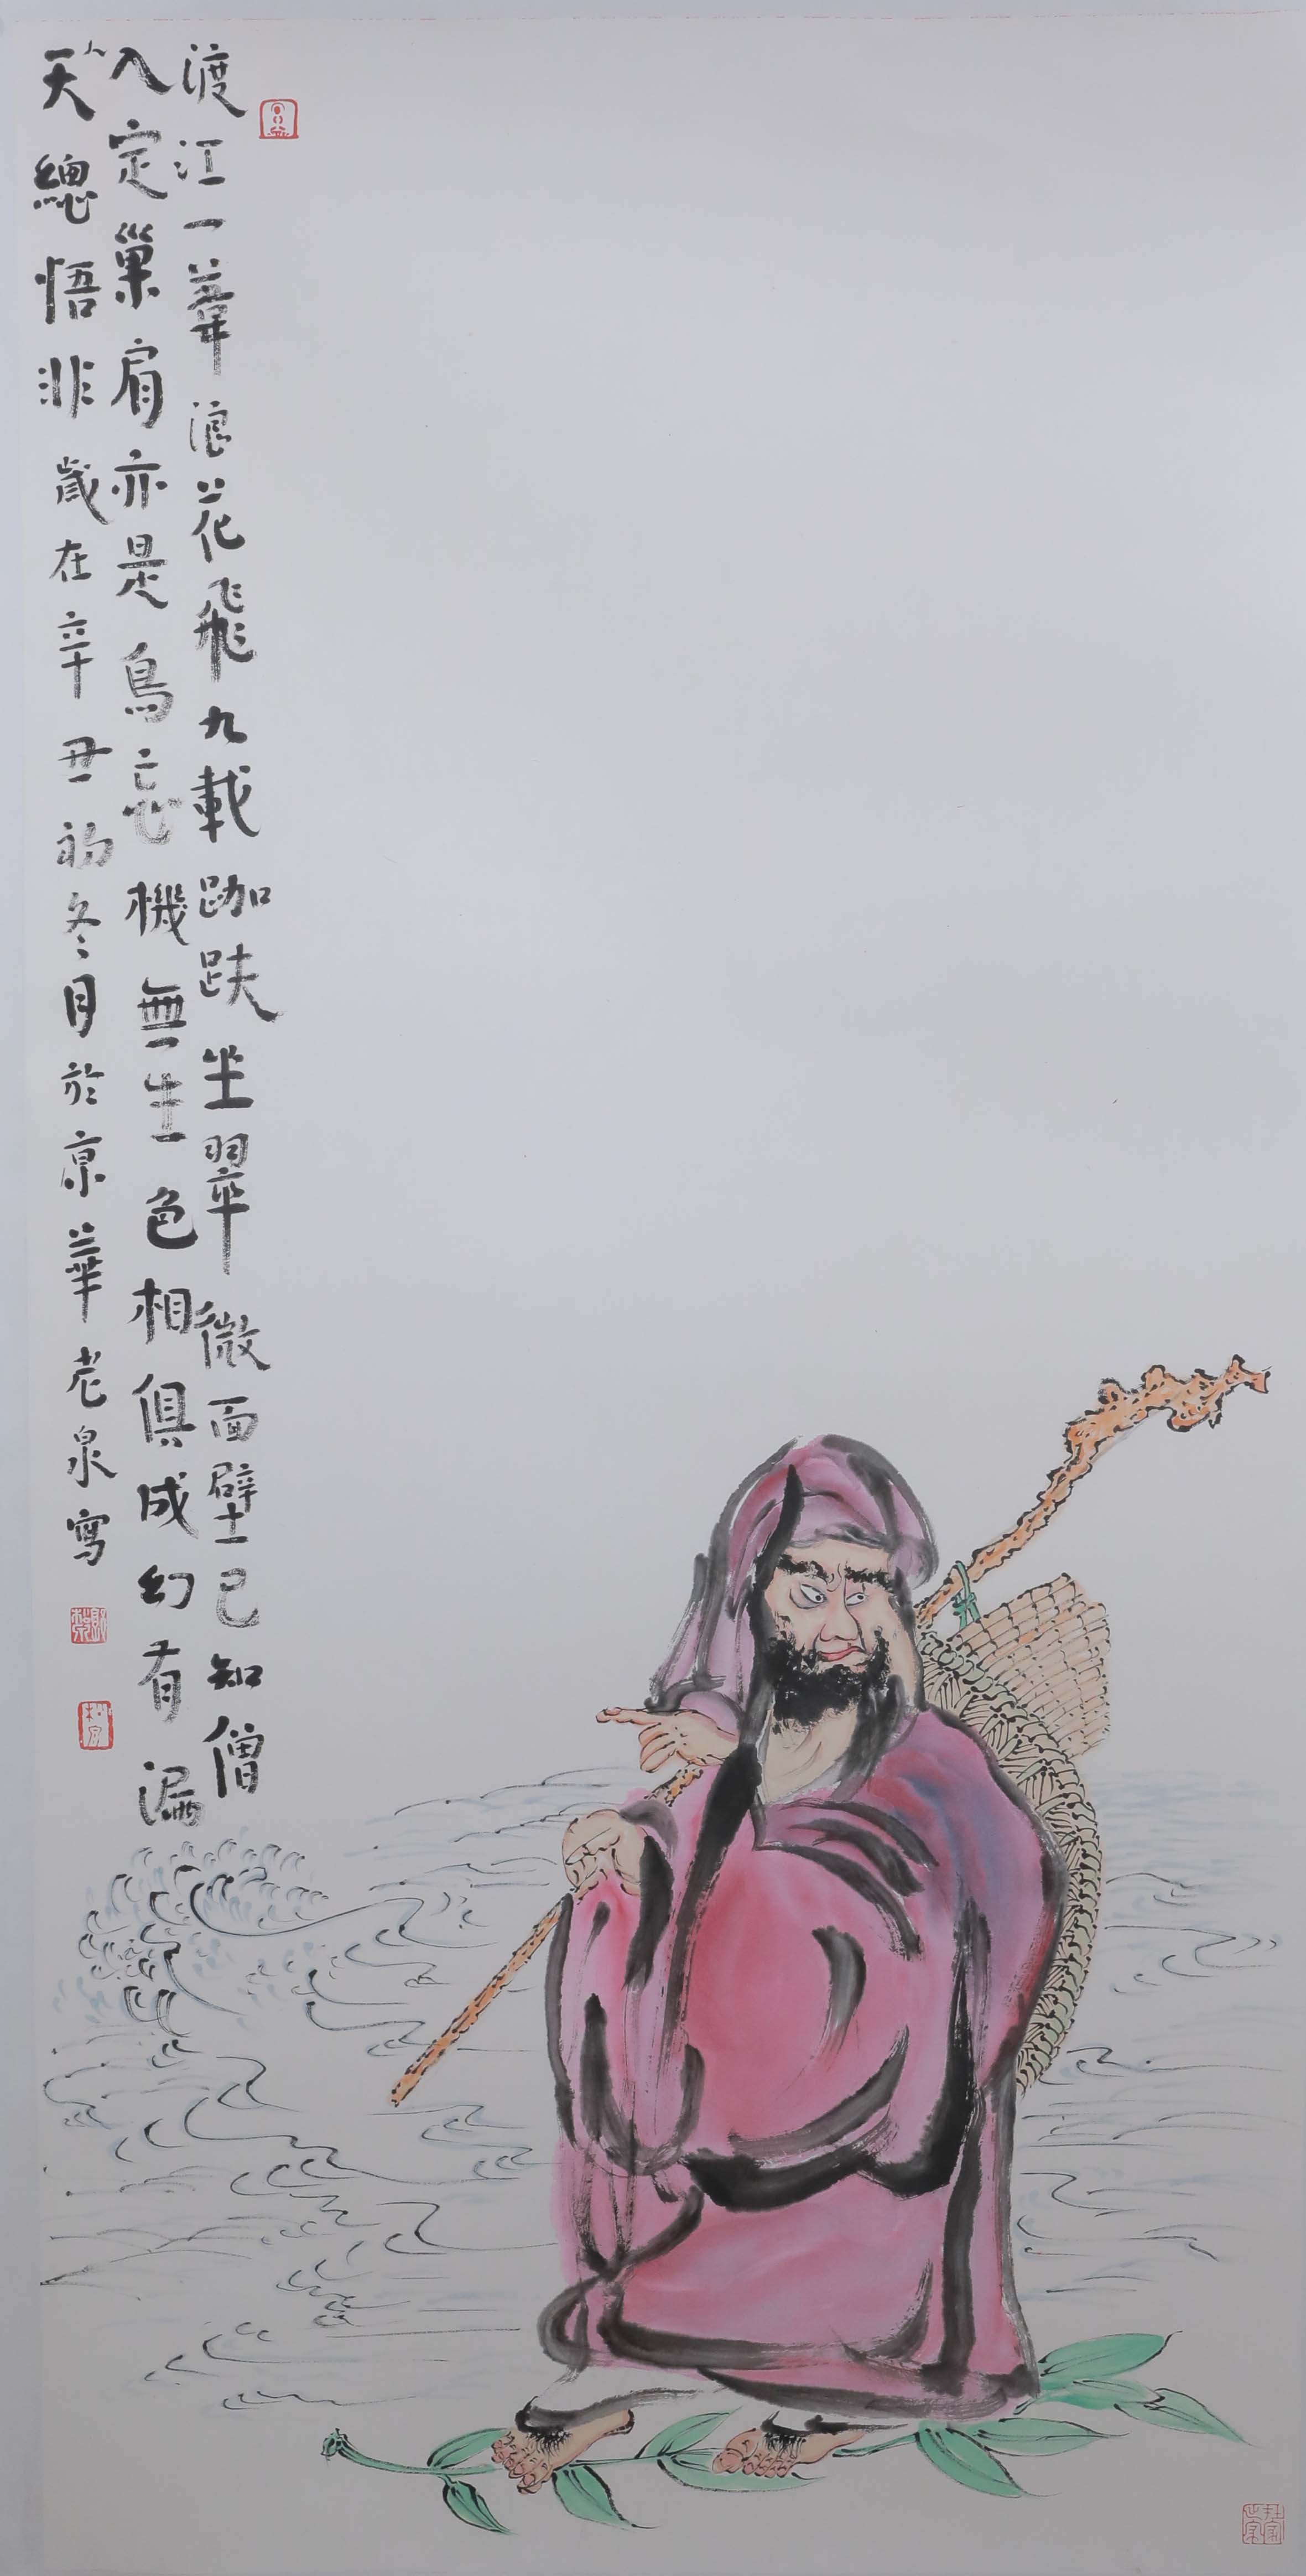 渡江一葦浪花飛九載跏趺坐翠微面壁已知僧
入定巢肩亦是鳥忘機無生色相俱成幻有漏
人天總悟非歲在辛丑初冬月於京華老泉寫